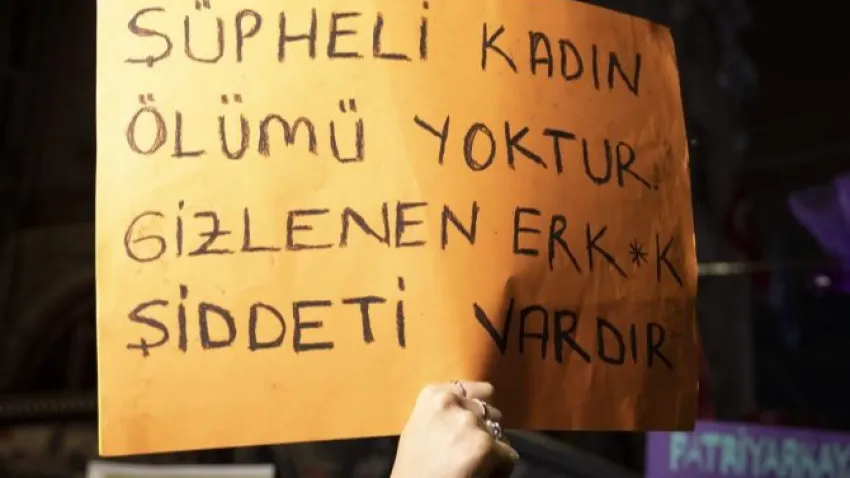 ŞÜPHELİ KADIN
ÖLÜMÜ YOKTUR.
GİZLENEN ERK*K
ŞİDDETİ VARDIR
PATRİYARKAY